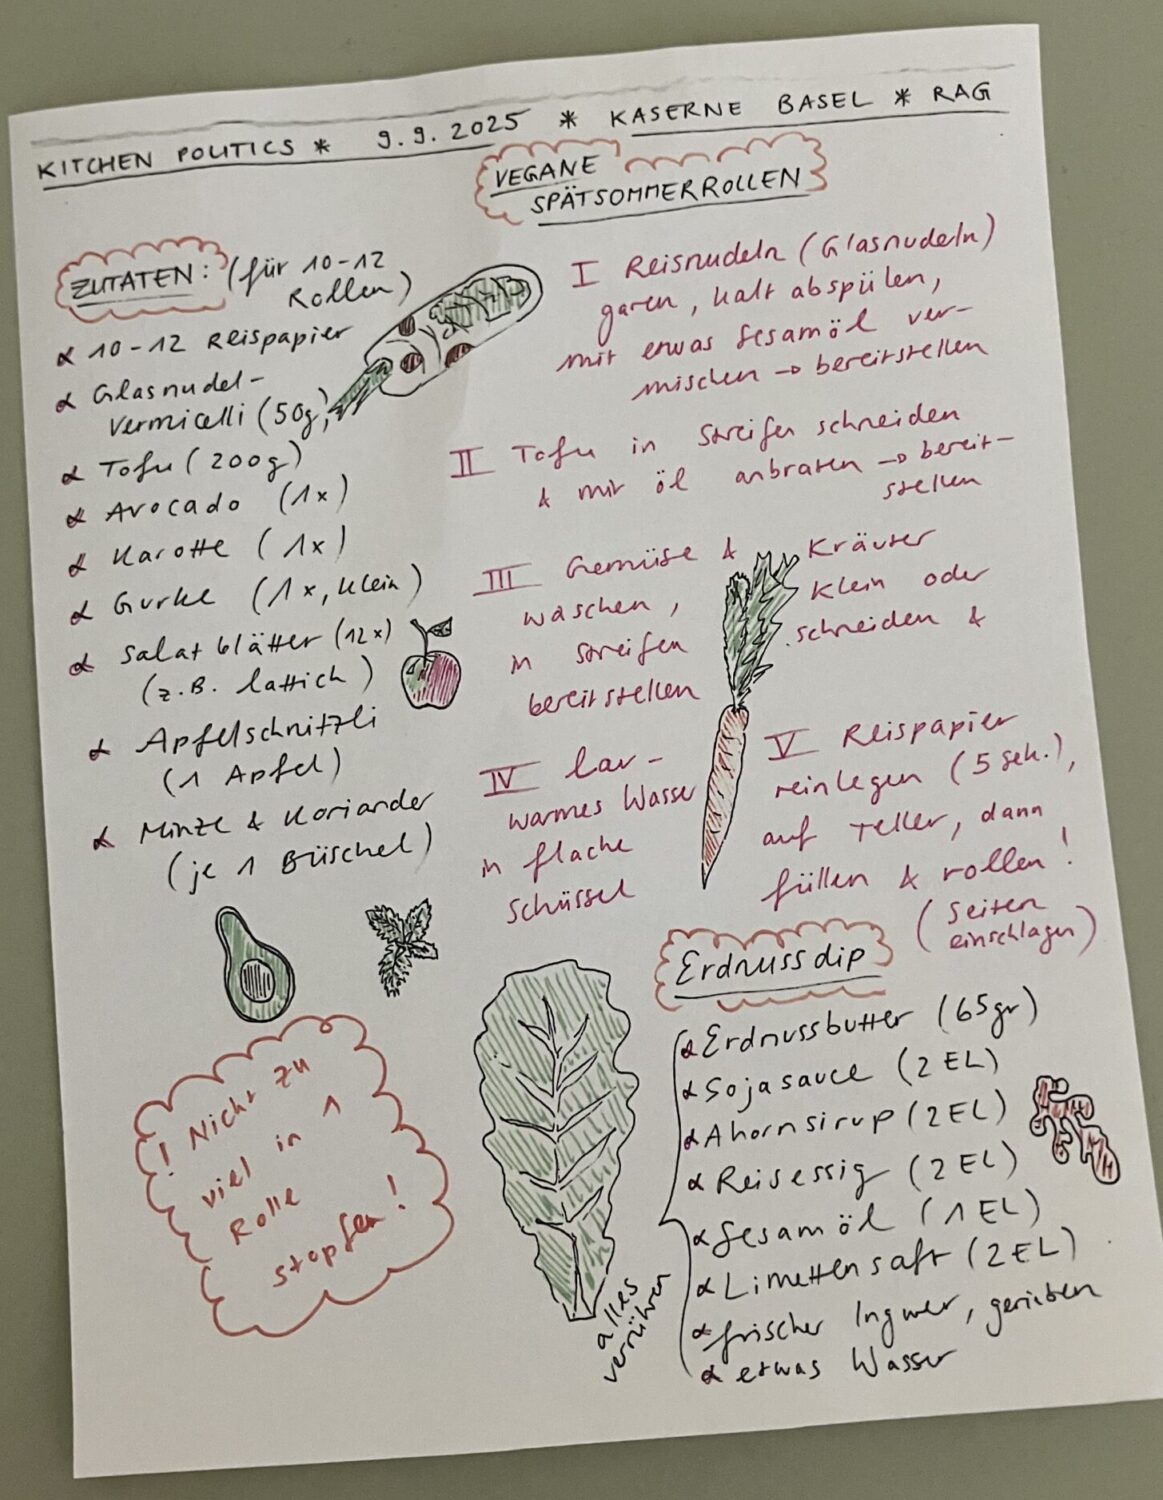 KITCHEN POLITICS * 9.9.2025 * KASERNE BASEL * RAG
VEGANE
SPÄTSOMMERROLLEN
ZUTATEN: (für 10-12
Rollen)
10-12 Reispapier
Glasnudel-
Vermicelli (50g)
Tofu (200g)
Avocado (1x)
Karotte (1x)
Gurke (1x, klein)
Salatblätter (12x)
(z.B. Lattich)
Apfelschnitzli
(1 Apfel)
Minze & Koriander
(je 1 Büschel)
I Reisnudeln (Glasnudeln)
garen, kalt abspülen,
mit etwas Sesamöl ver-
mischen → bereitstellen
II Tofu in Streifen schneiden
& mit Öl anbraten → bereit-
stellen
III Gemüse & Kräuter
waschen, klein oder
in Streifen schneiden &
bereitstellen
IV Lau-
warmes Wasser
in flache
Schüssel
V Reispapier
reinlegen (5 sek.),
auf Teller, dann
füllen & rollen!
(Seiten
einschlagen)
! Nicht zu
viel in 1
Rolle
stopfen!
Erdnussdip
Erdnussbutter (65gr)
Sojasauce (2 EL)
Ahornsirup (2 EL)
Reisessig (2 EL)
Sesamöl (1 EL)
Limettensaft (2 EL)
frischer Ingwer, gerieben
etwas Wasser
alles
verrühren